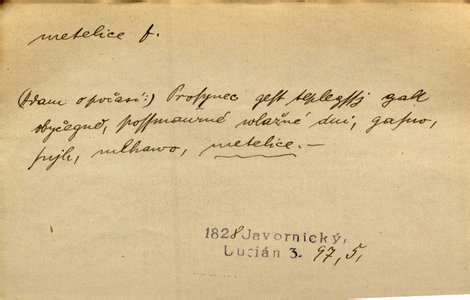 metelice f.
(Adam o počasí:) Prosynec gest teplegssj gak
obyčegně, possmaurné wlažné dni, gasno,
snjh, mlhawo, metelice. –
1828 Javornický,
Lucián 3. 97, 5.